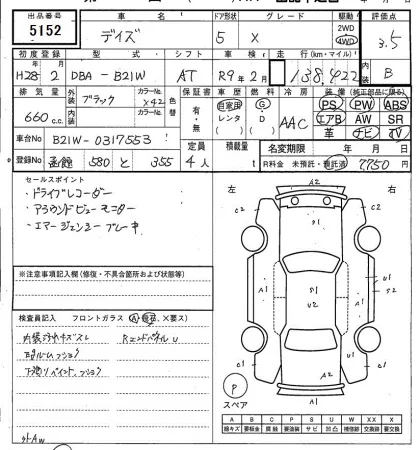 出品番号 車名 ドア形状 グレード 駆動 評価点
5152 デイズ 5 X 2WD 4WD 3.5
初度登録 型式 シフト 車検 走行(km・マイル) 内装
H28 2 DBA-B21W AT R9年2月 138,422 B
排気量 外装 カラーNo. 色替 保証書 車歴 燃料 冷房 装備(純正部品に限る)
660 c.c. ブラック X42 有・無 自家用 レンタ G D AAC PS PW ABS
内装 カラーNo. エアB AW SR
革 ナビ TV
車台No B21W-0317553 定員 積載量 名変期限 年 月 日
登録No 580 と 355 4人 R料金 未預託・委託済 7750円
セールスポイント
・ドライブレコーダー
・アラウンドビューモニター
・エマージェンシーブレーキ
左 右
A2
C2 C1
A1 S1 U2 U1 S1
C2 A2 C2
A2
※注意事項記入欄(修復・不具合箇所および状態等)
検査員記入 フロントガラス(A、飛石、X要ス)
内装汚れキズし RエンドパネルU
下廻りペイントクッション
外AW
P
スペア
A B C G S U W X XX
線キズ 要板金 腐蝕 要塗装 サビ 凹凸 補修跡 交換跡 要交換